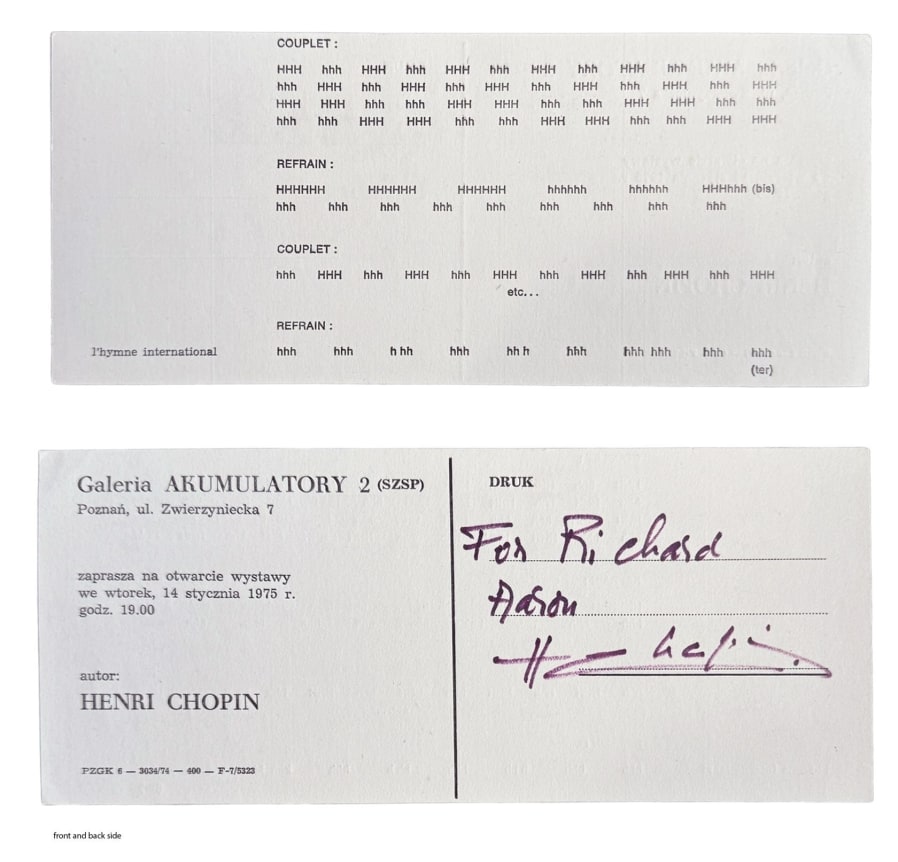 COUPLET :
HHH hhh HHH hhh HHH hhh HHH hhh HHH hhh HHH hhh
hhh HHH hhh HHH hhh HHH hhh HHH hhh HHH hhh HHH
HHH HHH hhh hhh HHH HHH hhh hhh HHH HHH hhh hhh
hhh hhh HHH HHH hhh hhh HHH HHH hhh hhh HHH HHH
REFRAIN :
HHHHHH HHHHHH HHHHHH hhhhhh hhhhhh HHHhhh (bis)
hhh hhh hhh hhh hhh hhh hhh hhh hhh
COUPLET :
hhh HHH hhh HHH hhh HHH hhh HHH hhh HHH hhh HHH
etc...
REFRAIN :
l'hymne international hhh hhh h hh hhh hh h hhh hhh hhh hhh hhh
(ter)
Galeria AKUMULATORY 2 (SZSP)
Poznań, ul. Zwierzyniecka 7
zaprasza na otwarcie wystawy
we wtorek, 14 stycznia 1975 r.
godz. 19.00
autor:
HENRI CHOPIN
PZGK 6 — 3034/74 — 400 — F-7/5323
DRUK
For Richard
Aaron
H Chopin
front and back side